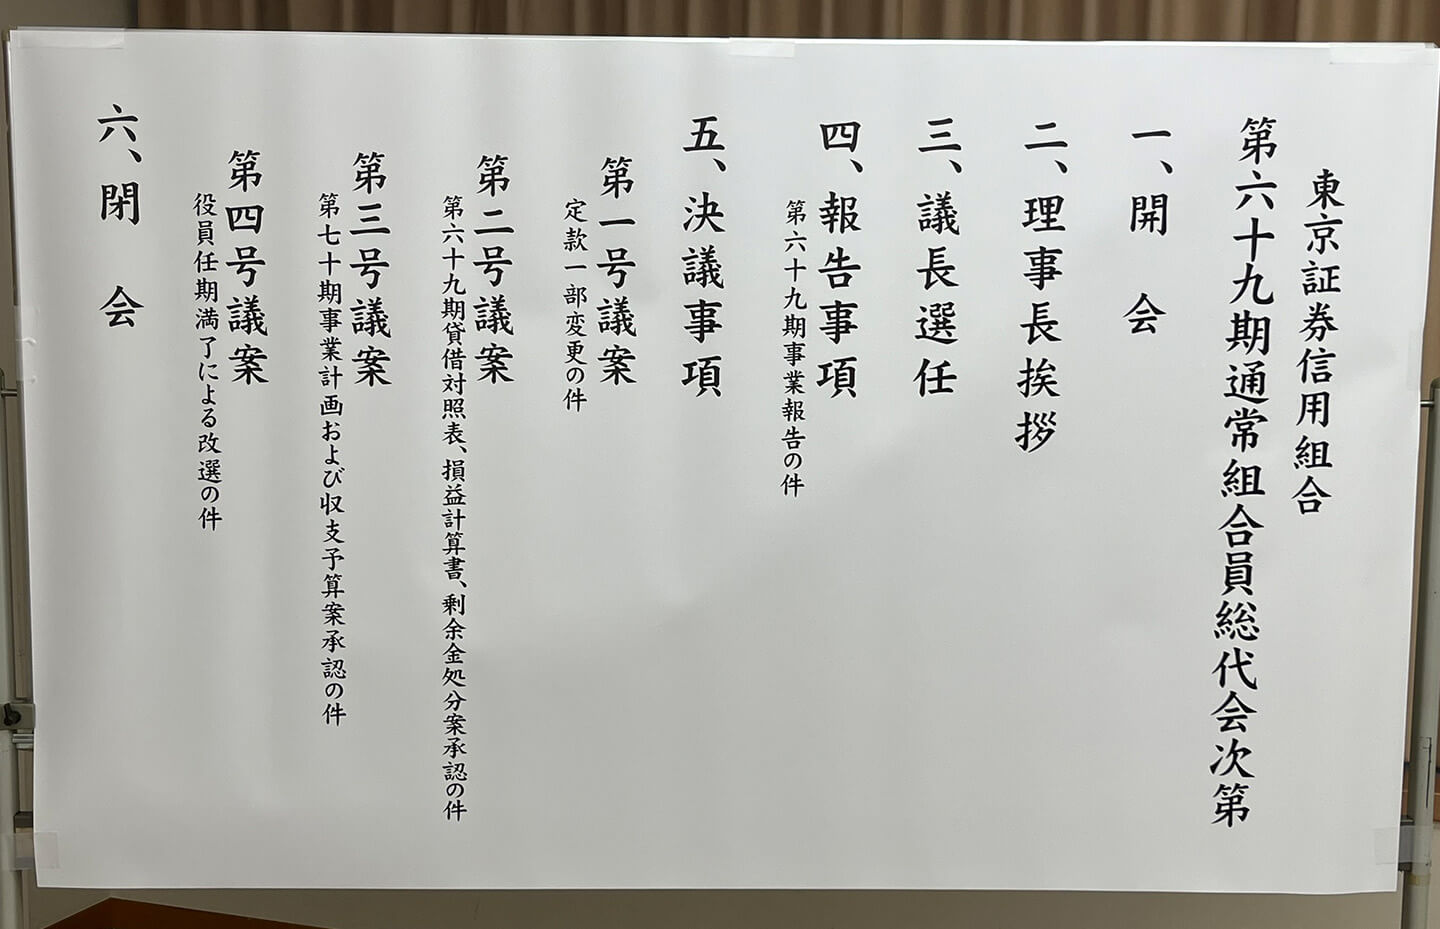 東京証券信用組合
第六十九期通常組合員総代会次第
一、開　会
二、理事長挨拶
三、議長選任
四、報告事項
第六十九期事業報告の件
五、決議事項
第一号議案
定款一部変更の件
第二号議案
第六十九期貸借対照表、損益計算書、剰余金処分案承認の件
第三号議案
第七十期事業計画および収支予算案承認の件
第四号議案
役員任期満了による改選の件
六、閉　会